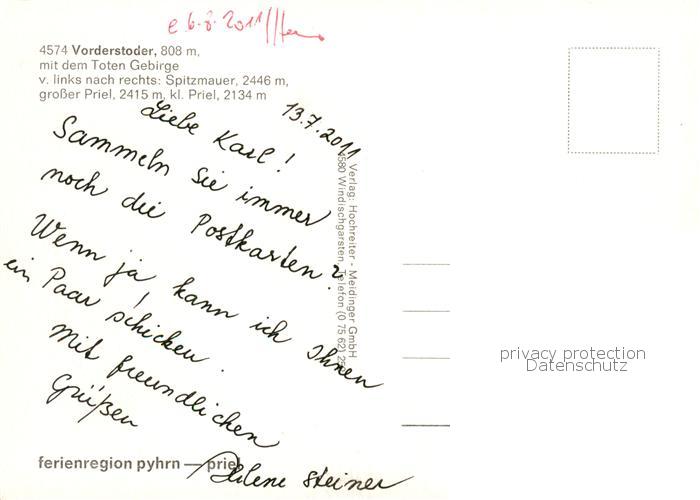 e 6.8.2011
4574 Vorderstoder, 808 m,
mit dem Toten Gebirge
v. links nach rechts: Spitzmauer, 2446 m,
großer Priel, 2415 m, kl. Priel, 2134 m
13.7.2011
Liebe Karl!
Sammeln Sie immer
noch die Postkarten?
Wenn ja, kann ich Ihnen
ein Paar schicken.
Mit freundlichen
Grüßen
Helene Steiner
ferienregion pyhrn — priel
Verlag: Hochreiter - Meidinger GmbH
4580 Windischgarsten, Telefon (0 75 62) 25
privacy protection
Datenschutz